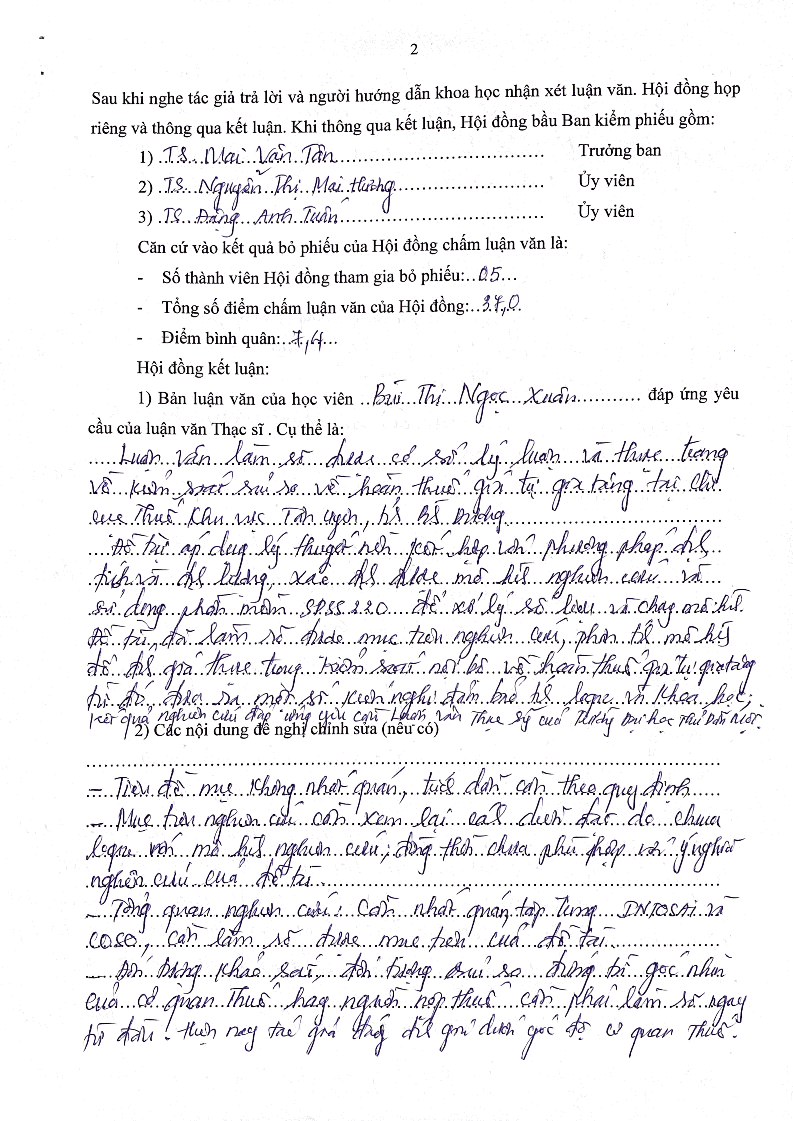 2
Sau khi nghe tác giả trả lời và người hướng dẫn khoa học nhận xét luận văn. Hội đồng họp
riêng và thông qua kết luận. Khi thông qua kết luận, Hội đồng bầu Ban kiểm phiếu gồm:
1) TS. Mai Văn Tân Trưởng ban
2) TS. Nguyễn Thị Mai Hương Ủy viên
3) TS. Đặng Anh Tuấn Ủy viên
Căn cứ vào kết quả bỏ phiếu của Hội đồng chấm luận văn là:
- Số thành viên Hội đồng tham gia bỏ phiếu: 05
- Tổng số điểm chấm luận văn của Hội đồng: 37,0
- Điểm bình quân: 7,4
Hội đồng kết luận:
1) Bản luận văn của học viên Bùi Thị Ngọc Xuân đáp ứng yêu
cầu của luận văn Thạc sĩ . Cụ thể là:
Luận văn làm rõ được cơ sở lý luận và thực trạng
về kiểm soát rủi ro về hoàn thuế giá trị gia tăng tại chi
cục Thuế khu vực Tân Uyên,
Đề tài áp dụng lý thuyết nền kết hợp với phương pháp định
tính và định lượng, xác định được mô hình nghiên cứu và
sử dụng phần mềm SPSS 22.0 để xử lý số liệu và chạy mô hình.
Đề tài đã làm rõ được mục tiêu nghiên cứu, phân tích mô hình
để đánh giá thực trạng kiểm soát nội bộ về hoàn thuế giá trị gia tăng
từ đó, đưa ra một số kiến nghị đảm bảo tính logic và khoa học;
kết quả nghiên cứu đáp ứng yêu cầu Luận văn Thạc sỹ của Trường Đại học Thủ Dầu Một.
2) Các nội dung đề nghị chỉnh sửa (nếu có)
- Tiêu đề mục không nhất quán, trích dẫn cần theo quy định
- Mục tiêu nghiên cứu cần xem lại cách diễn đạt do chưa
logic với mô hình nghiên cứu; đồng thời chưa phù hợp với ý nghĩa
nghiên cứu của đề tài.
- Tổng quan nghiên cứu: Cần nhất quán tập trung INTOSAI và
COSO, cần làm rõ được mục tiêu của đề tài.
- Đối tượng khảo sát, đối tượng rủi ro đứng từ góc nhìn
của cơ quan Thuế hay người nộp thuế cần phải làm rõ ngay
từ đầu. Hiện nay tác giả đánh giá dưới góc độ cơ quan Thuế.